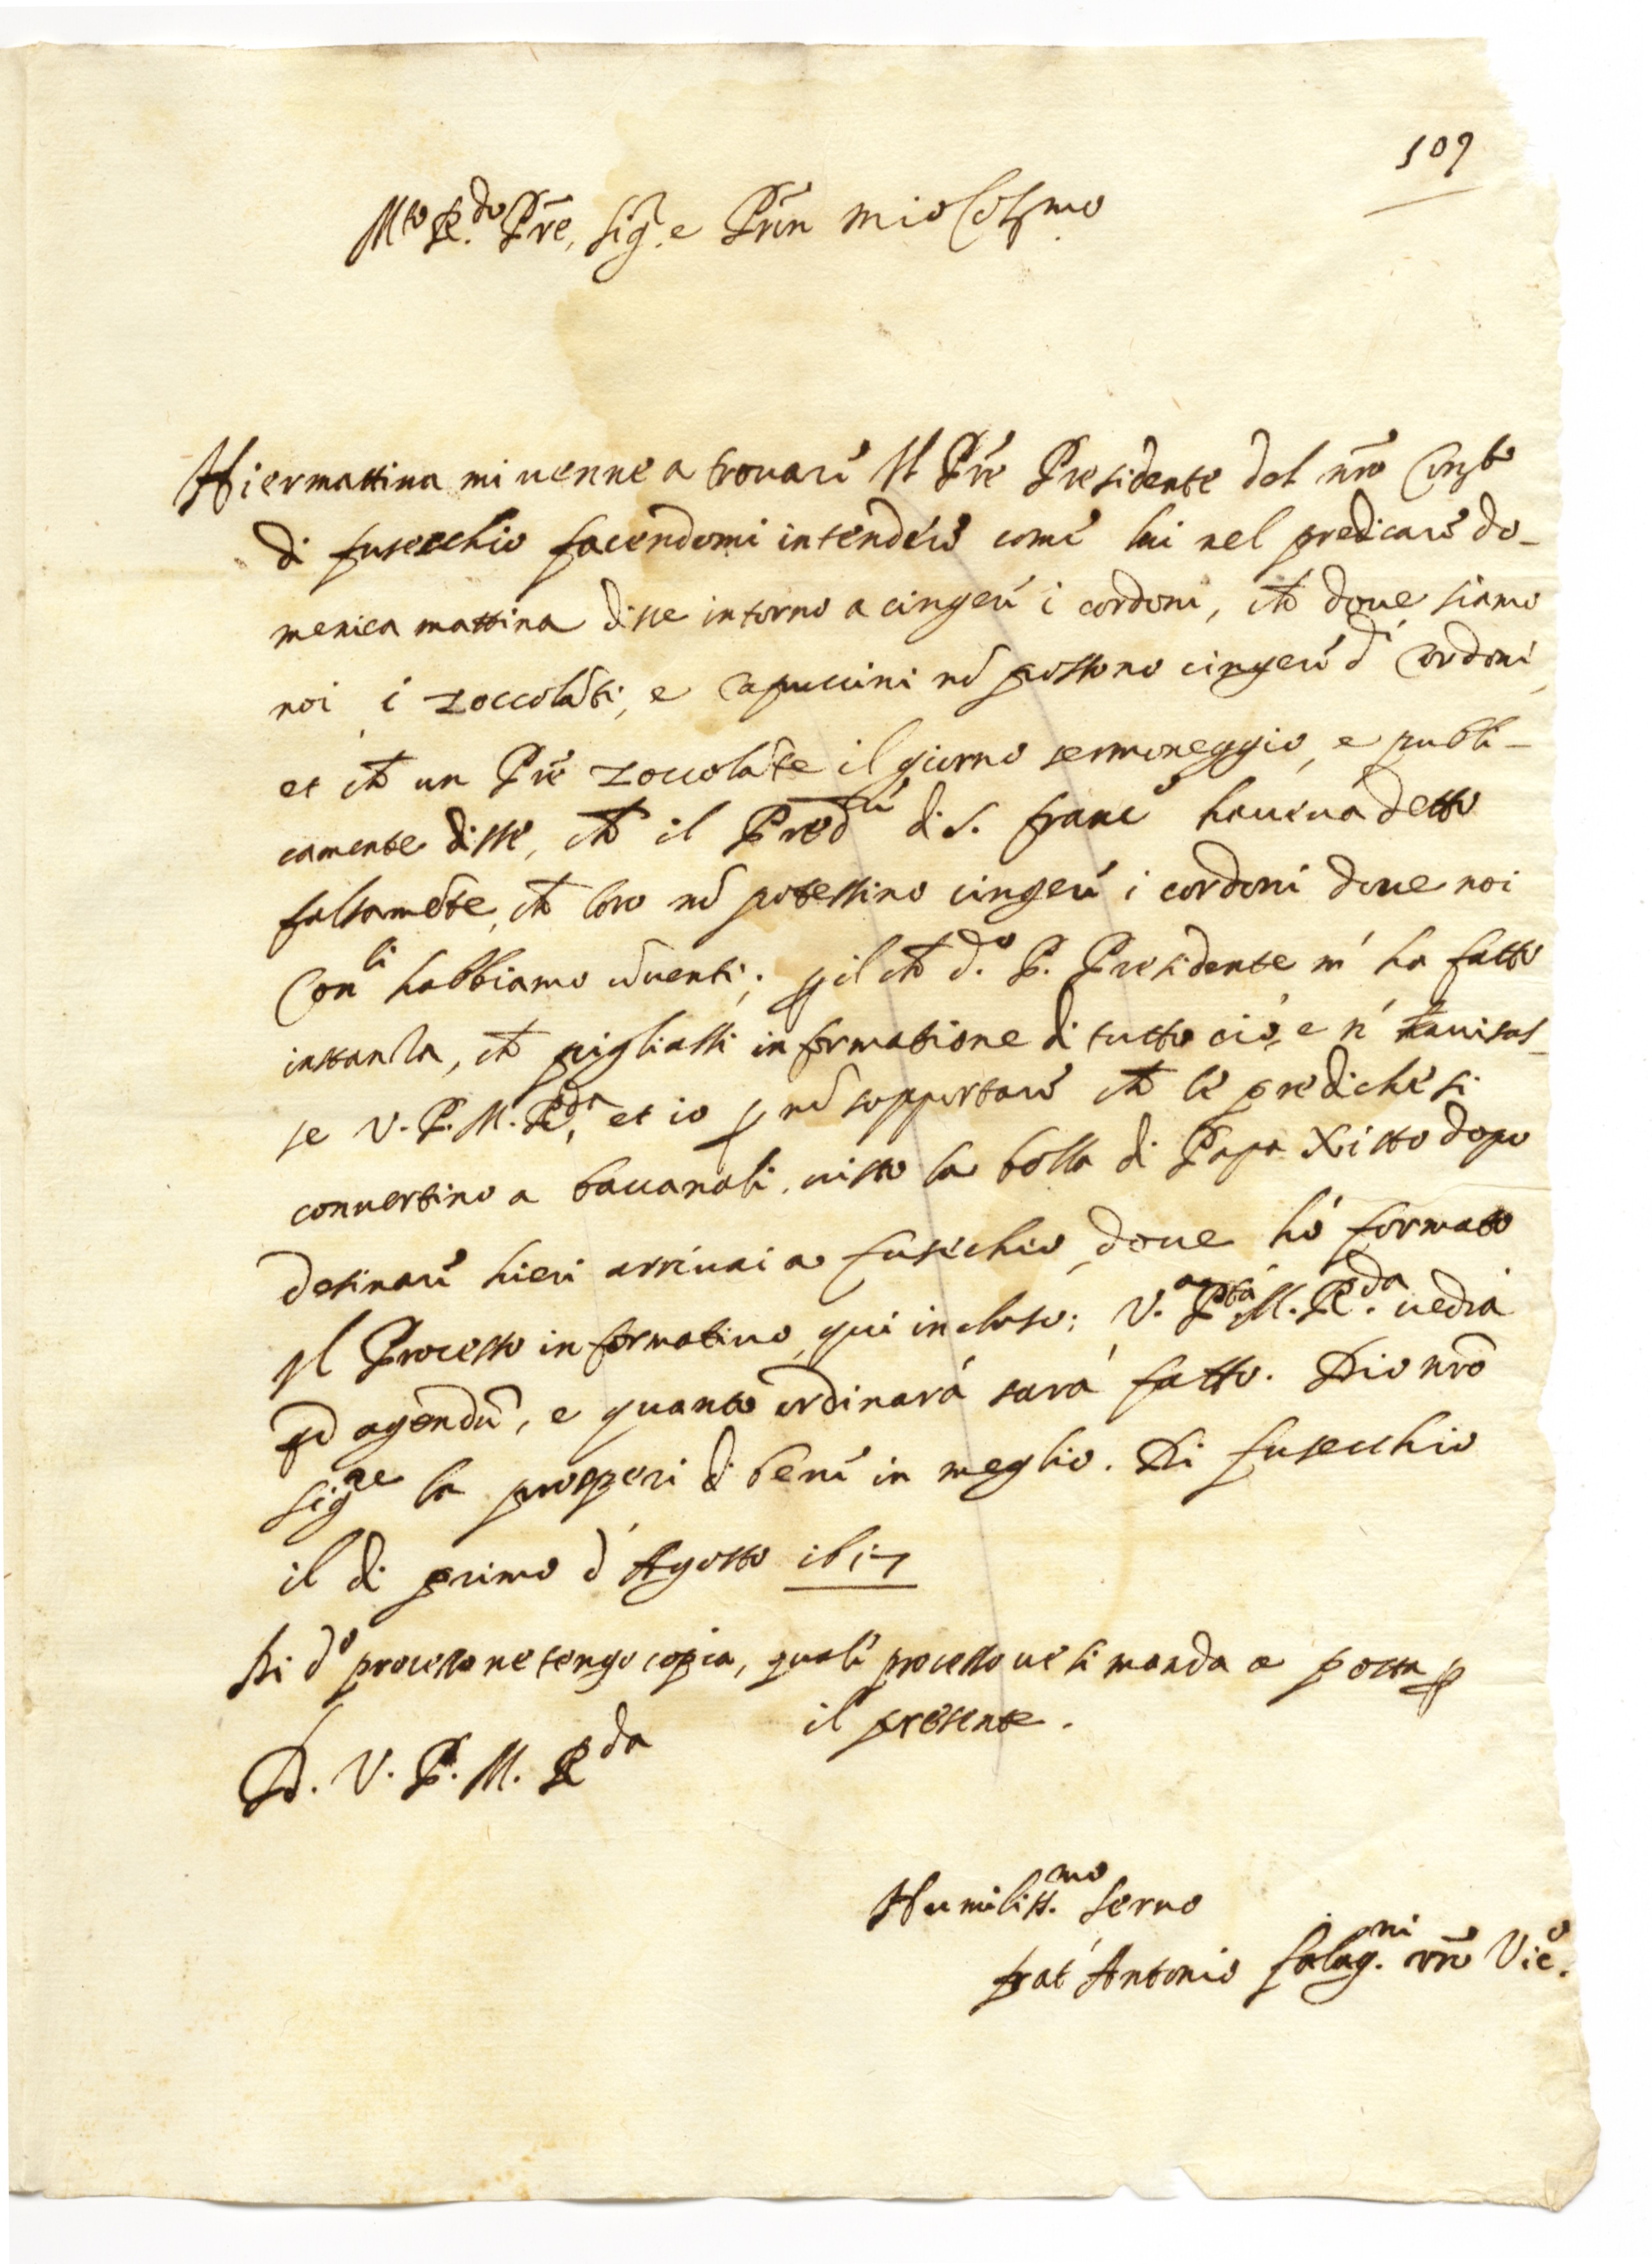 109
M.to R.do Pre, Sig.r e Prõn mio Col.mo
Hiermattina mi uenne a trouare Il Pre Presidente del nro Conv.to
di fusecchio facendomi intendere come lui nel predicare do-
menica mattina disse intorno a cingere i cordoni, ch̃ doue siamo
noi i zoccolãti, e capuccini nõ possono cingere d' cordoni,
et ch̃ un Pre zoccolãte il giorno sermoneggiò, e publi-
camente disse, ch̃ il Pred.re di S. franc.o haueua detto
falsamẽte, ch̃ loro nõ potessino cingere i cordoni doue noi
Con.li habbiamo cõuenti; p il ch̃ d.o P. Presidente m' ha fatto
instanza, ch̃ pigliassi informatione di tutto ciò, e n' auisas-
se V. P. M. R.da, et io p nõ sopportare ch̃ le prediche si
conuertino a baccanali, uisto la bolla di Papa Xisto dopo
desinare hieri arriuai a fusechio, doue hò formato
Il Processo informatiuo, qui incluso; V.a P.tà M. R.da uedrà
qd agendũ, e quanto ordinarà sarà fatto. Dio nrõ
Sig.re la prosperi di bene in meglio. Di fusecchio
il di primo d' Agosto 1617
Di d.o processo ne tengo copia, quale processo ue si manda a posta p
il presente.
D. V. P. M. R.da
Humiliss.mo Seruo
frat' Antonio Salag.ni vrõ Vic.o